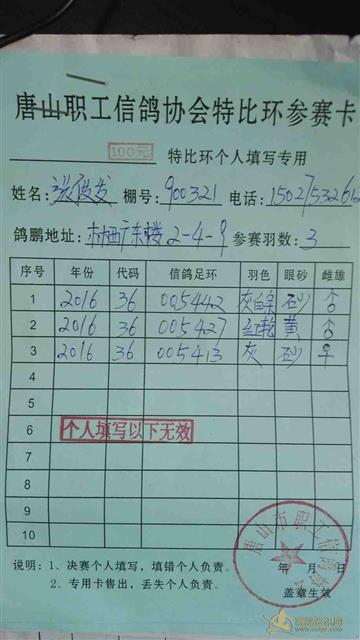 唐山职工信鸽协会特比环参赛卡
100元 特比环个人填写专用
姓名: 张俊发 棚号: 900321 电话: 15027532612
鸽鹏地址: 林西矿东楼2-4-9 参赛羽数: 3
序号 年份 代码 信鸽足环 羽色 眼砂 雌雄
1 2016 36 005442 灰白条 砂
2 2016 36 005427 红轮 黄
3 2016 36 005413 灰 砂
4
5
6 个人填写以下无效
7
8
9
10
说明: 1、决赛个人填写,填错个人负责。 年 月 日
2、专用卡售出,丢失个人负责。 盖章生效
唐山市职工信鸽协会